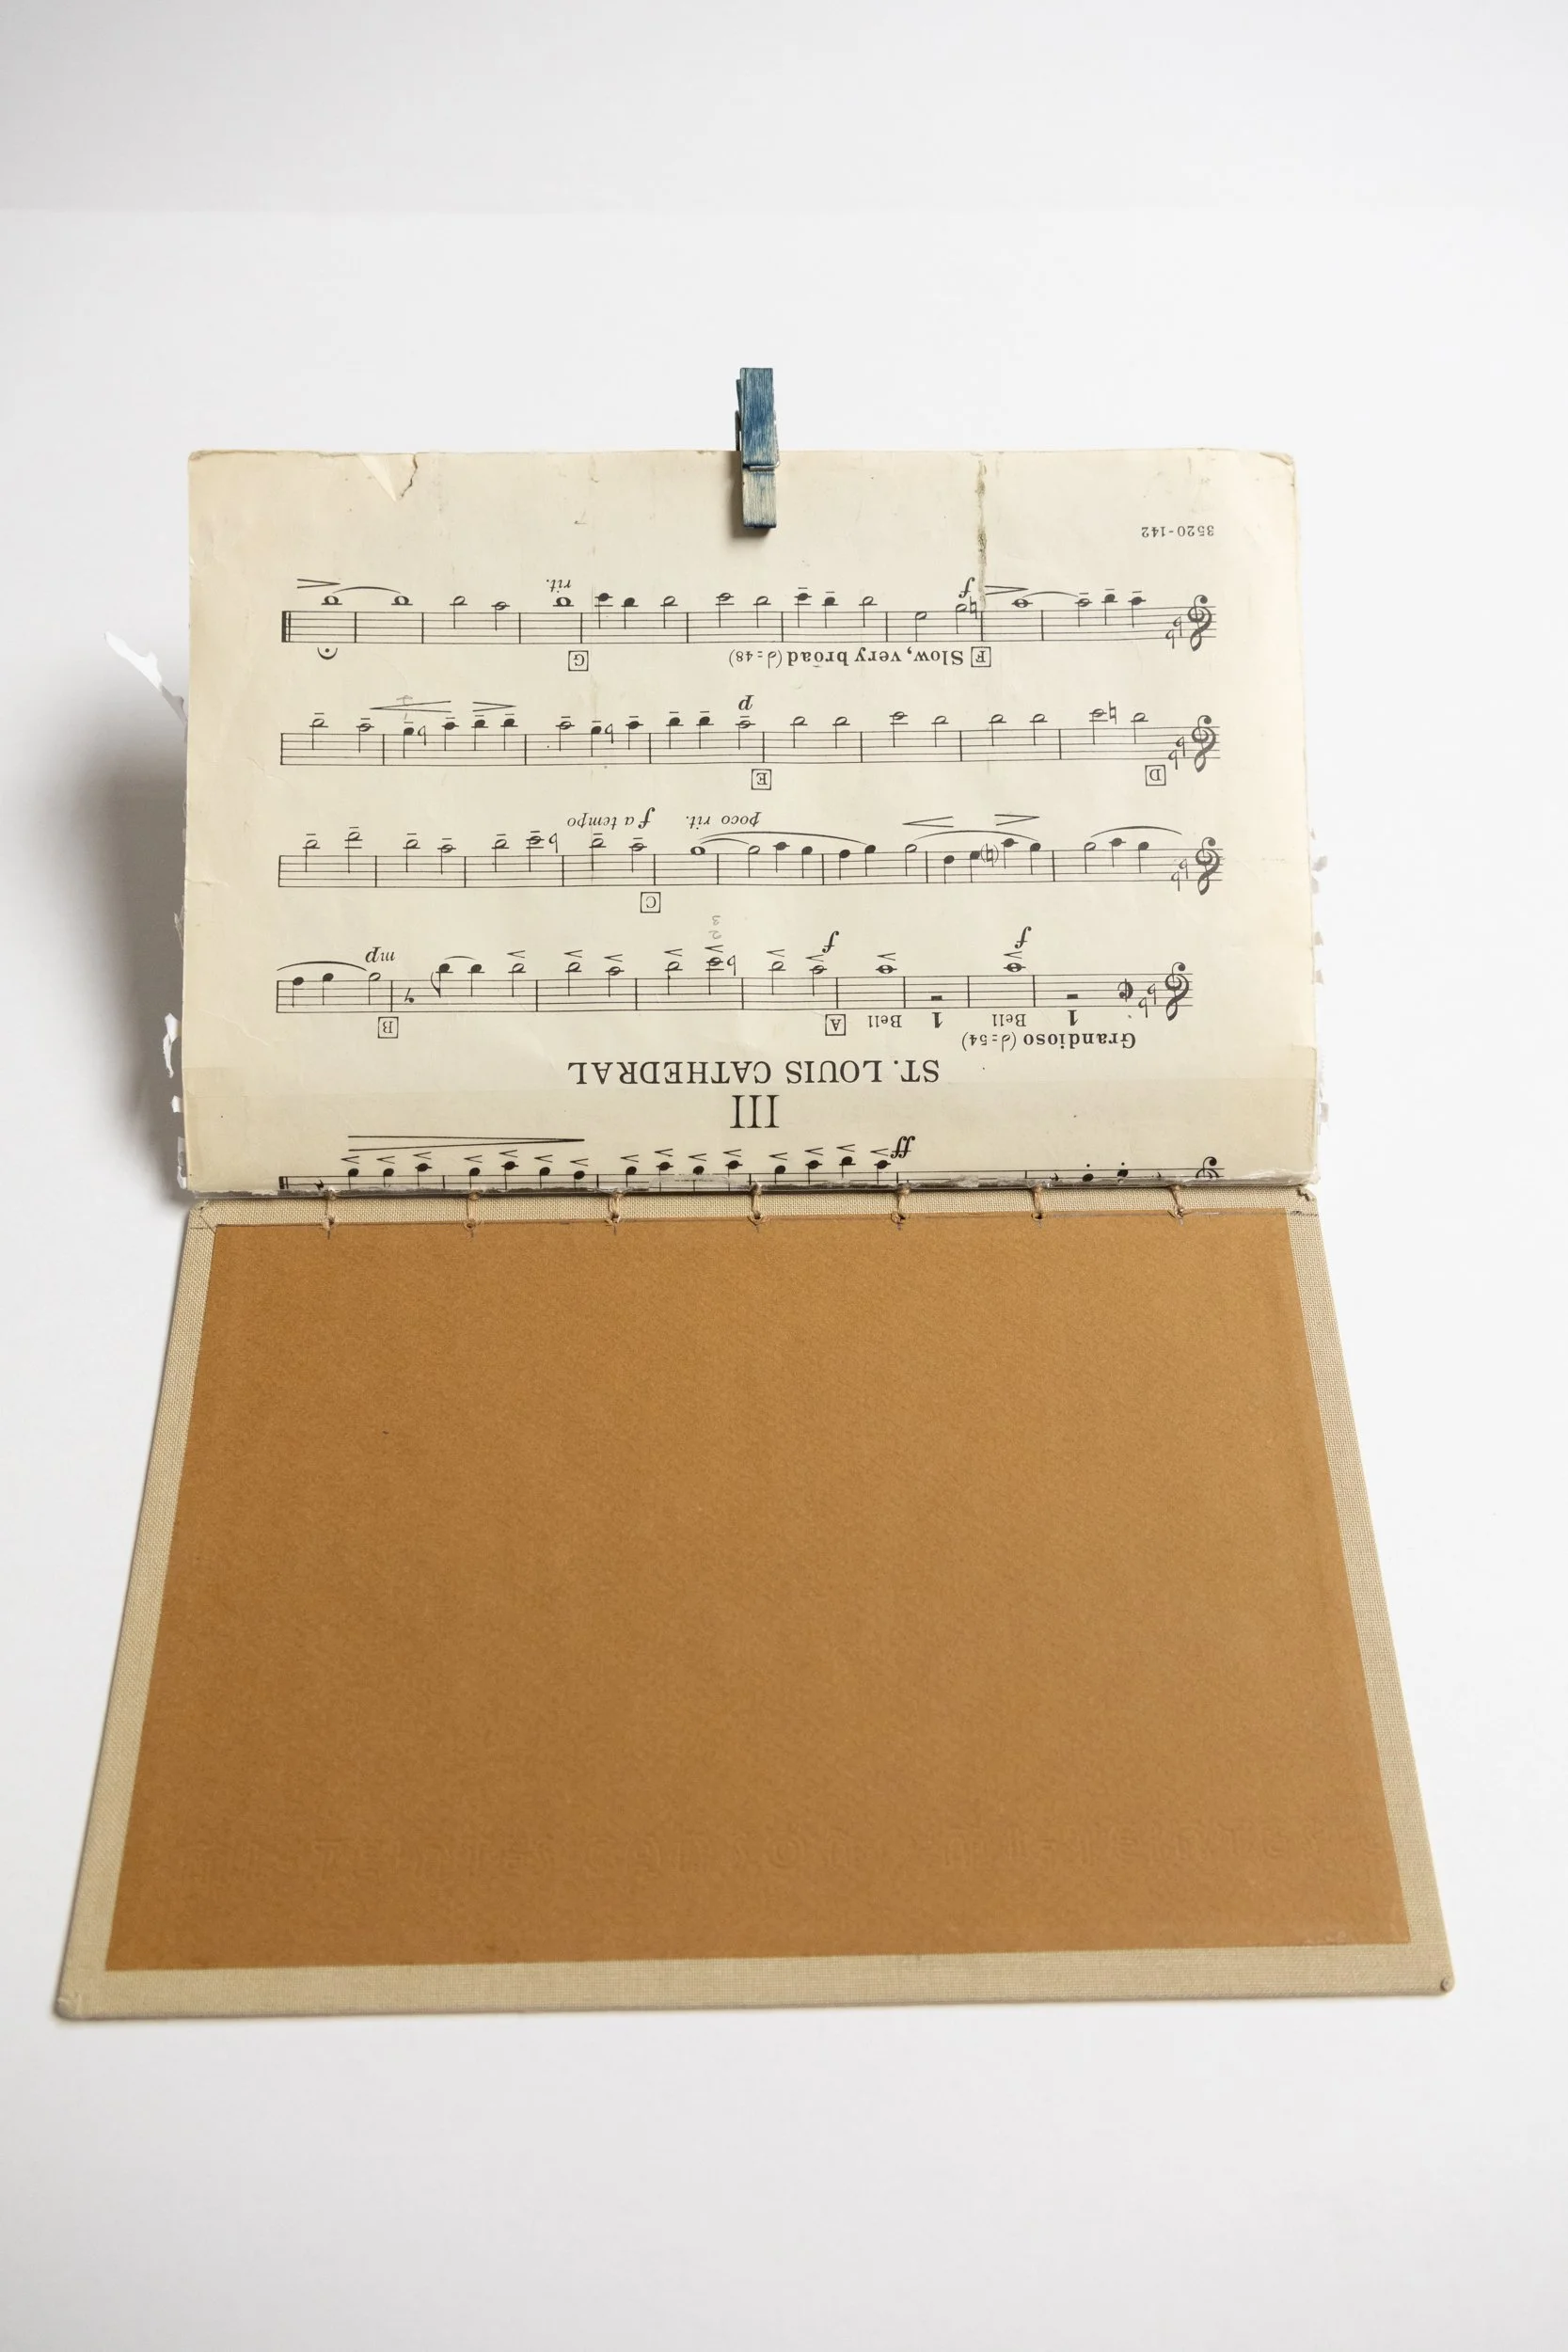 ff
III
ST. LOUIS CATHEDRAL
Grandioso (𝅗𝅥=54)
1 Bell 1 Bell A B
f f mp
C
poco rit. f a tempo
D E
p
F Slow, very broad (𝅗𝅥=48) G
f rit.
3520-142
MI-TEINTES CANSON MI-TEINTES